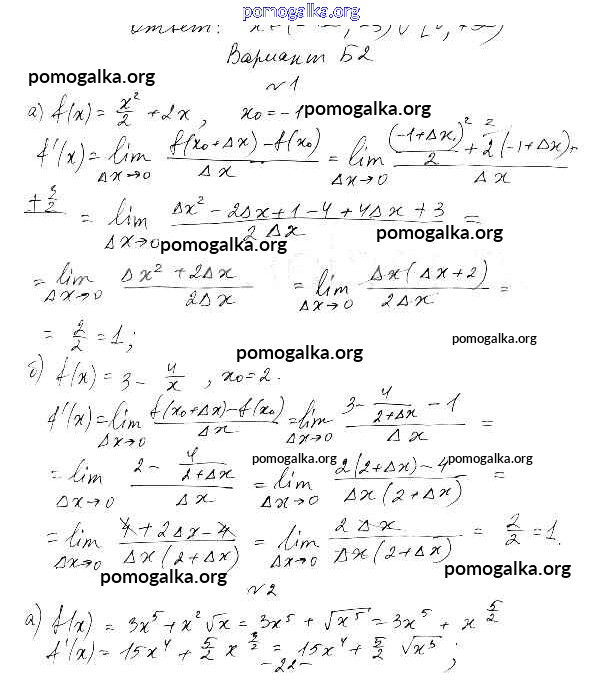 pomogalka.org
Ответ:
Вариант Б2
pomogalka.org
№1
а) f(x) = x²/2 + 2x, x₀ = -1 pomogalka.org
f'(x) = lim Δx→0 (f(x₀+Δx) - f(x₀))/Δx = lim Δx→0 ((-1+Δx)²/2 + 2(-1+Δx) +
+ 3/2)/Δx = lim Δx→0 (Δx² - 2Δx + 1 - 4 + 4Δx + 3)/(2Δx) =
pomogalka.org pomogalka.org
= lim Δx→0 (Δx² + 2Δx)/(2Δx) = lim Δx→0 (Δx(Δx+2))/(2Δx) =
= 2/2 = 1;
pomogalka.org pomogalka.org
б) f(x) = 3 - 4/x, x₀ = 2.
f'(x) = lim Δx→0 (f(x₀+Δx) - f(x₀))/Δx = lim Δx→0 (3 - 4/(2+Δx) - 1)/Δx =
pomogalka.org pomogalka.org
= lim Δx→0 (2 - 4/(2+Δx))/Δx = lim Δx→0 (2(2+Δx) - 4)/(Δx(2+Δx)) =
= lim Δx→0 (4 + 2Δx - 4)/(Δx(2+Δx)) = lim Δx→0 2Δx/(Δx(2+Δx)) = 2/2 = 1.
pomogalka.org pomogalka.org
№2
а) f(x) = 3x⁵ + x²√x = 3x⁵ + √x⁵ = 3x⁵ + x^(5/2)
f'(x) = 15x⁴ + 5/2 x^(3/2) = 15x⁴ + 5/2 √x³;
-22-